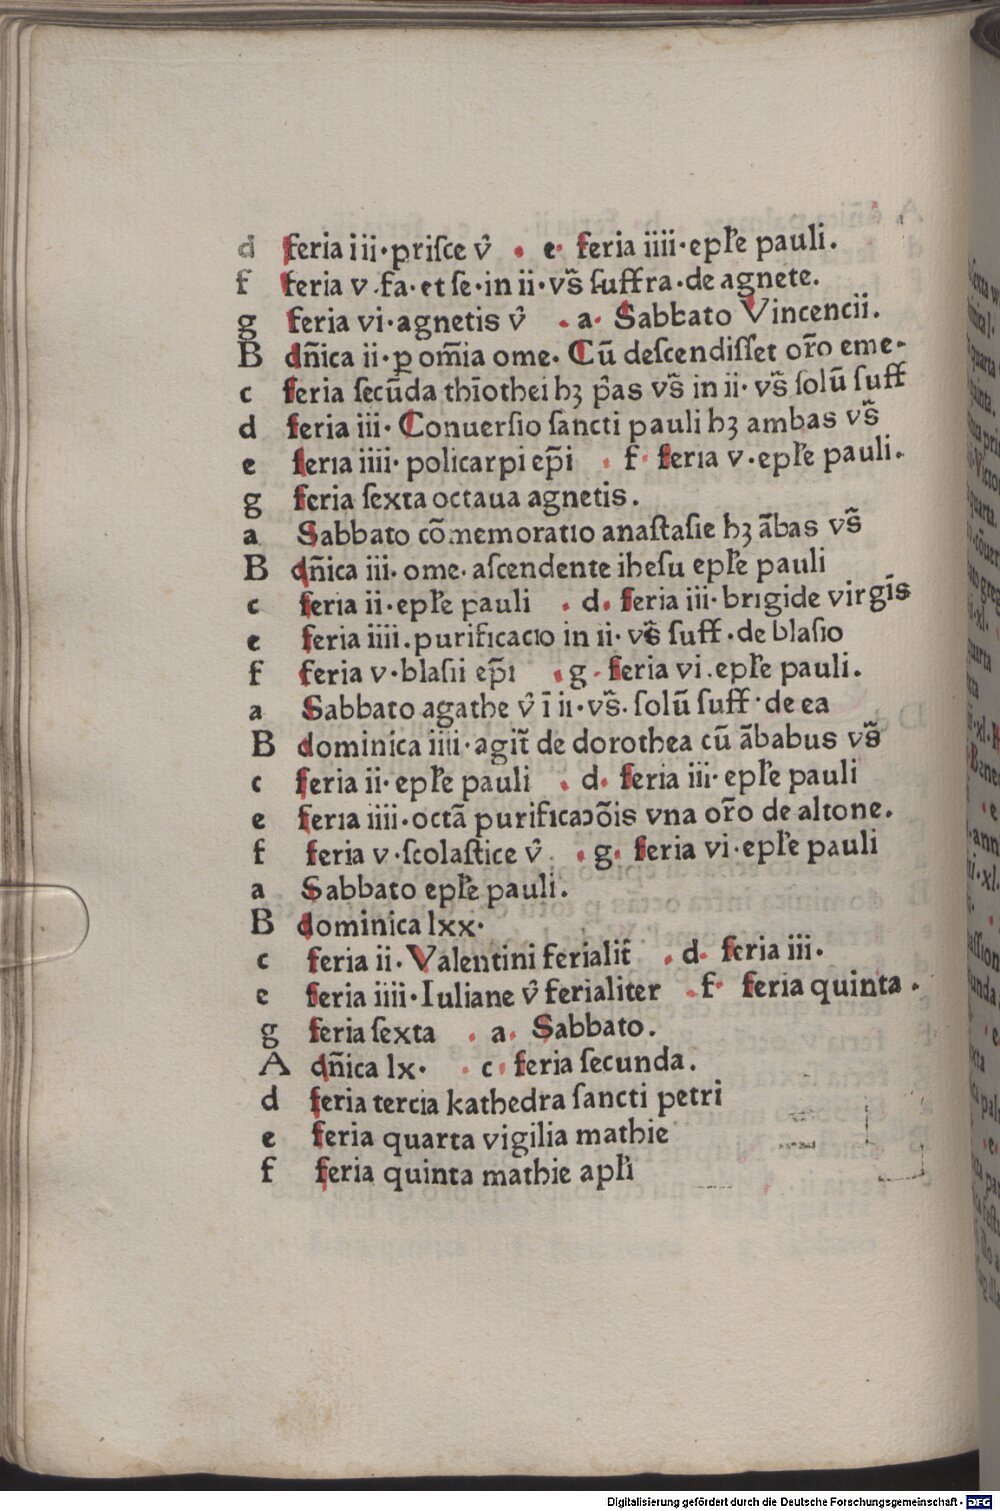 d feria iii·priſce v̂ · e· feria iiii·epl̃e pauli.
f feria v·fa·et ſe·in ii·vs̃ ſuffra·de agnete.
g feria vi·agnetis v̂ ·a· Sabbato Vincencii.
B dn̄ica ii·ꝑ om̄ia ome· Cū deſcendiſſet or̄o eme-
c feria ſecūda thīothei hꝫ p̄as vs̃ in ii· vs̃ ſolū ſuff
d feria iii· Conuerſio ſancti pauli hꝫ ambas vs̃
e feria iiii· policarpi ep̄i · f· feria v·epl̃e pauli.
g feria ſexta octaua agnetis.
a Sabbato cōmemoratio anaſtaſie hꝫ ābas vs̃
B dn̄ica iii· ome· aſcendente iheſu epl̃e pauli
c feria ii·epl̃e pauli · d· feria iii·brigide virgīs
e feria iiii·purificacio in ii· vs̃ ſuff·de blaſio
f feria v·blaſii ep̄i ·g· feria vi·epl̃e pauli.
a Sabbato agathe v̂ ī ii·vs̃· ſolū ſuff·de ea
B dominica iiii·agit̄ de dorothea cū āba⁠bus vs̃
c feria ii·epl̃e pauli · d· feria iii·epl̃e pauli
e feria iiii·octā purificaↄōis vna or̄o de altone.
f feria v·ſcolaſtice v̂ ·g· feria vi·epl̃e pauli
a Sabbato epl̃e pauli.
B dominica lxx·
c feria ii·Valentini ferialit̄ ·d· feria iii·
e feria iiii·Iuliane v̂ ferialiter ·f· feria quinta·
g feria ſexta · a· Sabbato.
A dn̄ica lx· · c· feria ſecunda.
d feria tercia kathedra ſancti petri
e feria quarta vigilia mathie
f feria quinta mathie apl̃i
Digitalisierung gefördert durch die Deutsche Forschungsgemeinschaft - DFG